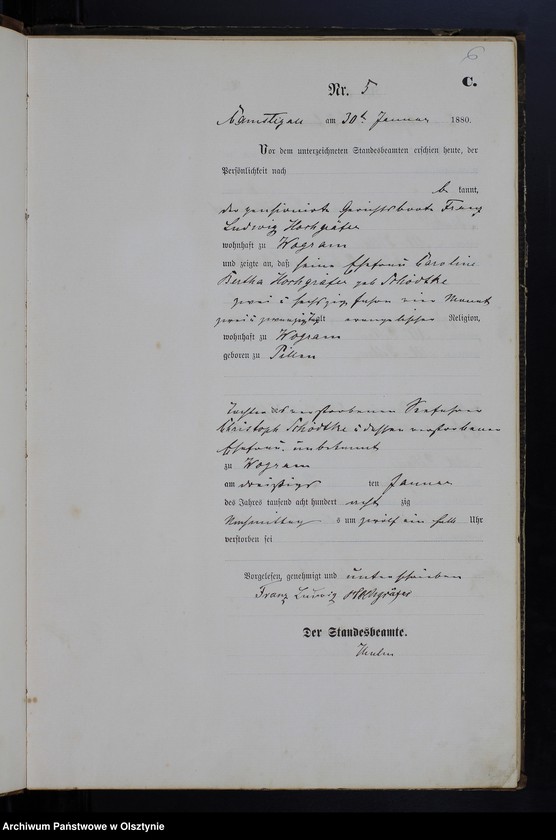 6
C.
Nr. 5
am 30t. Januar 1880.
Vor dem unterzeichneten Standesbeamten erschien heute, der
Persönlichkeit nach
be kannt,
der pensionirte Gerichtsbote Franz
Ludwig Hochgräfer
wohnhaft zu Wogram
und zeigte an, daß seine Ehefrau Caroline
Bertha Hochgräfer geb Schödtke
zwei u sechzig Jahre ein Monat
zwei u zwanzig Tg alt evangelischer Religion,
wohnhaft zu Wogram
geboren zu Pillau
Tochter des verstorbenen Seefahrer
Christoph Schödtke u dessen verstorbenen
Ehefrau, unbekannt
zu Wogram
am dreißigs ten Januar
des Jahres tausend acht hundert acht zig
Nachmittag s um zwölf ein halb Uhr
verstorben sei
Vorgelesen, genehmigt und unterschrieben
Franz Ludwig Hochgräfer
Der Standesbeamte.
Archiwum Państwowe w Olsztynie